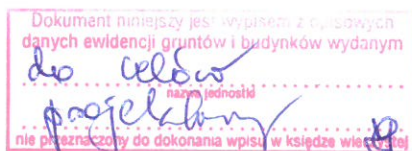 Dokument niniejszy jest wypisem z opisowych
danych ewidencji gruntów i budynków wydanym
do celów
nazwa jednostki
nie przeznaczony do dokonania wpisu w księdze wieczystej